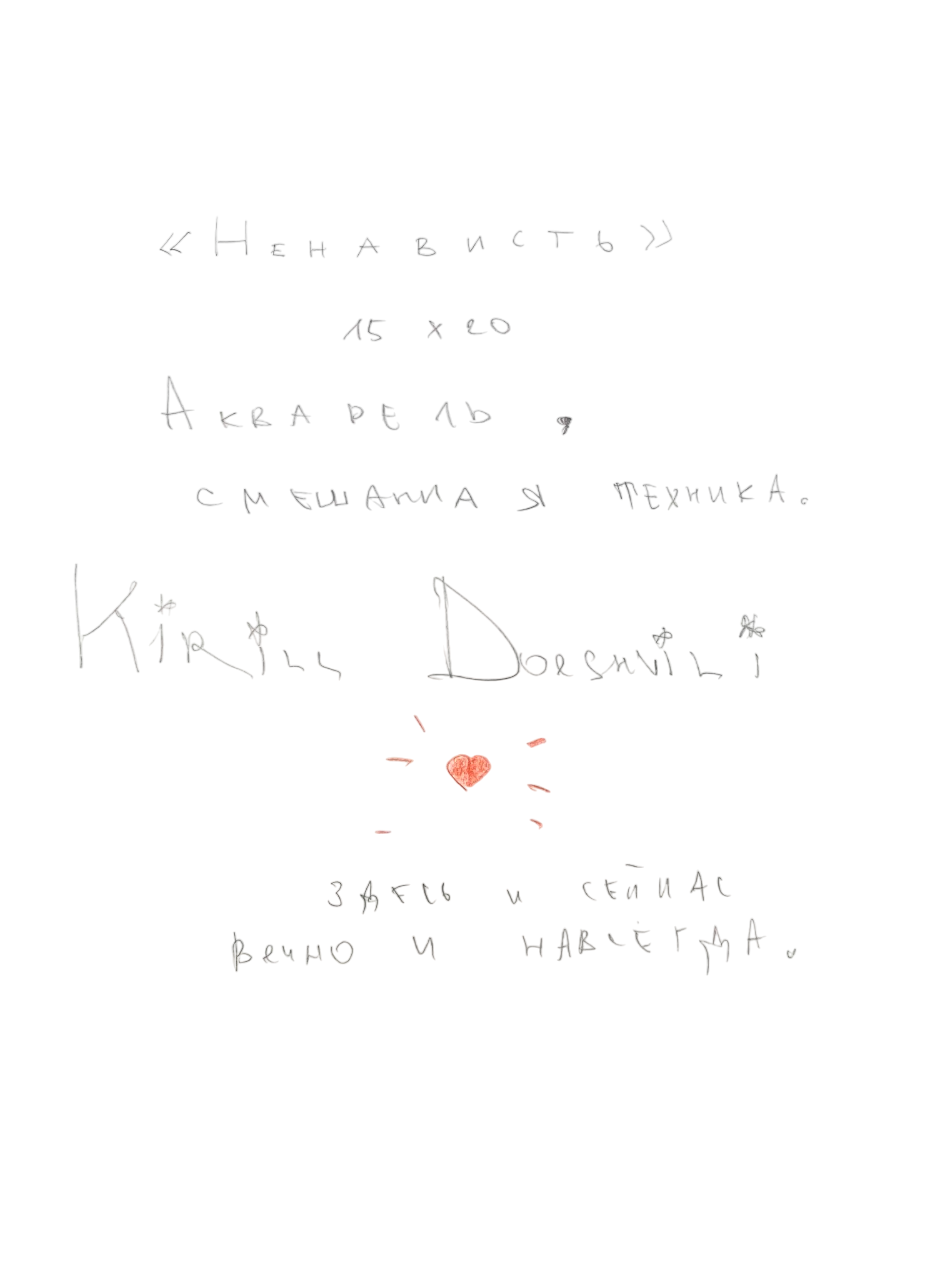 «Ненависть»
15 x 20
Акварель,
смешанная техника.
Kirill Dorshvili
Здесь и сейчас
вечно и навсегда.